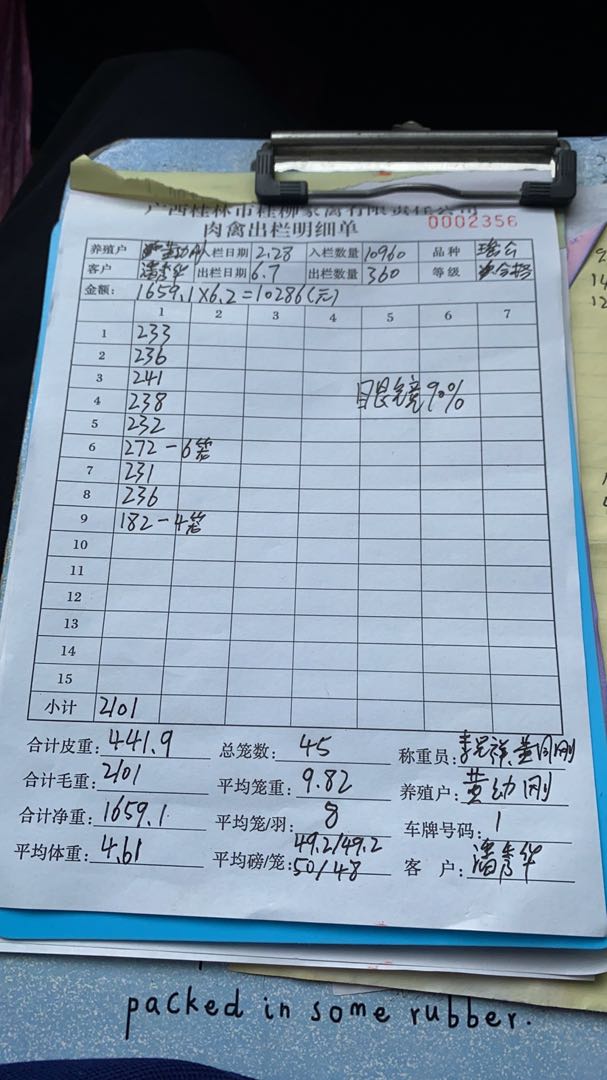 广西桂林市桂柳家禽有限责任公司
肉禽出栏明细单 0002356
养殖户 入栏日期 2.28 入栏数量 10960 品种 瑶合
客户 潘秀华 出栏日期 6.7 出栏数量 360 等级 合格
金额: 1659.1×6.2=10286(元)
1 2 3 4 5 6 7
1 233
2 236
3 241
4 238 眼镜90%
5 232
6 272-6笼
7 231
8 236
9 182-4笼
10
11
12
13
14
15
小计 2101
合计皮重: 441.9 总笼数: 45 称重员:
合计毛重: 2101 平均笼重: 9.82 养殖户: 黄幼刚
合计净重: 1659.1 平均笼/羽: 8 车牌号码: 1
平均体重: 4.61 平均磅/笼: 49.2/49.2 50/48 客户: 潘秀华
packed in some rubber.